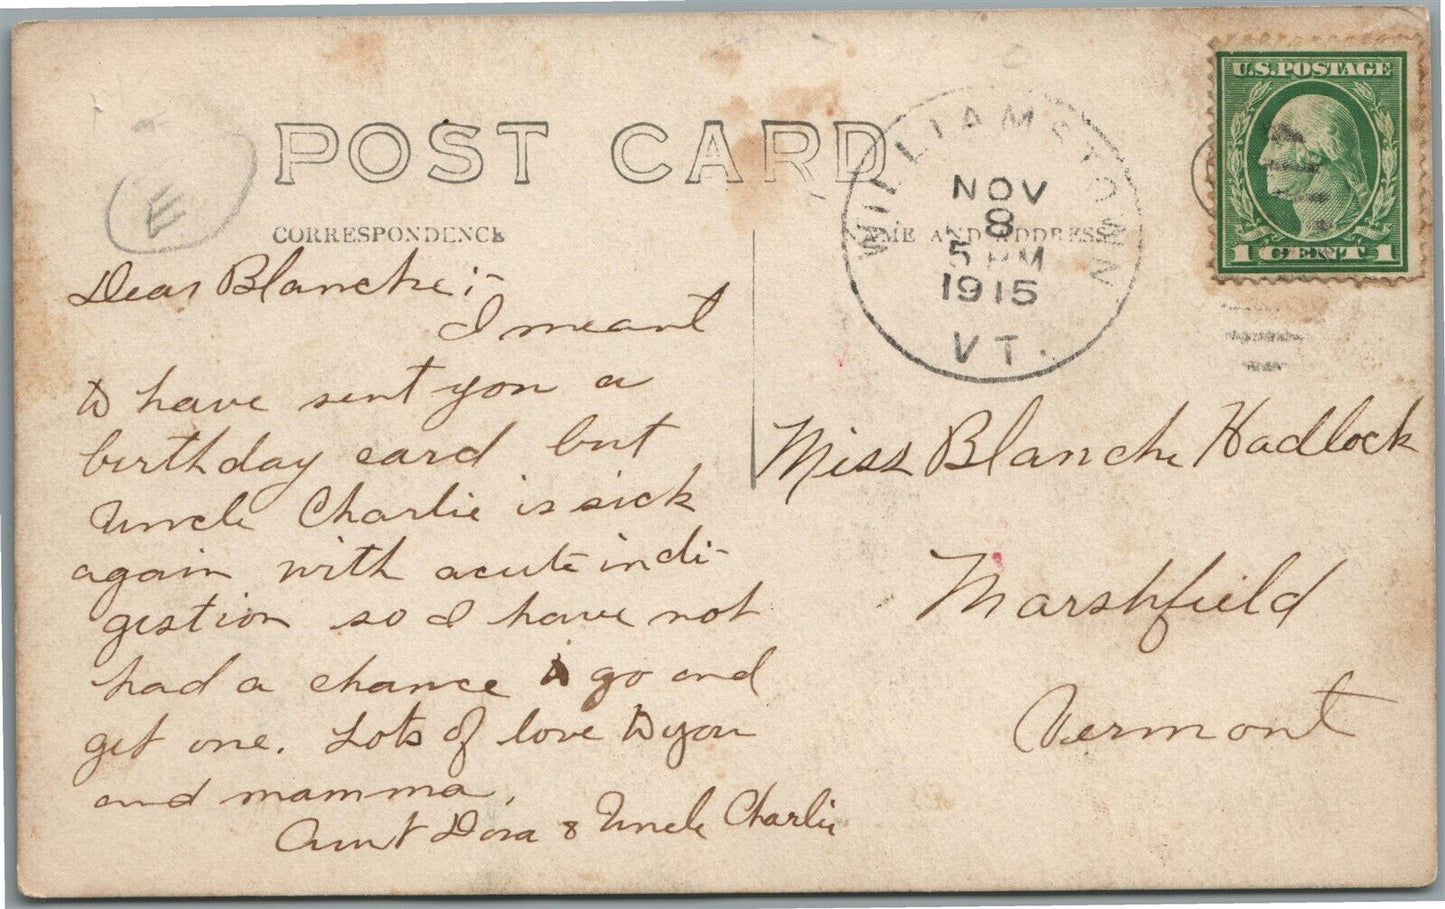 E
POST CARD
CORRESPONDENCE
AME AND ADDRESS
WILLIAMSTOWN
NOV
8
5 PM
1915
VT.
U.S.POSTAGE
1 CENT 1
Dear Blanche :-
I meant
to have sent you a
birthday card but
Uncle Charlie is sick
again with acute indi-
gestion so I have not
had a chance to go and
get one. Lots of love to you
and mamma.
Aunt Dora & Uncle Charlie
Miss Blanche Hadlock
Marshfield
Vermont